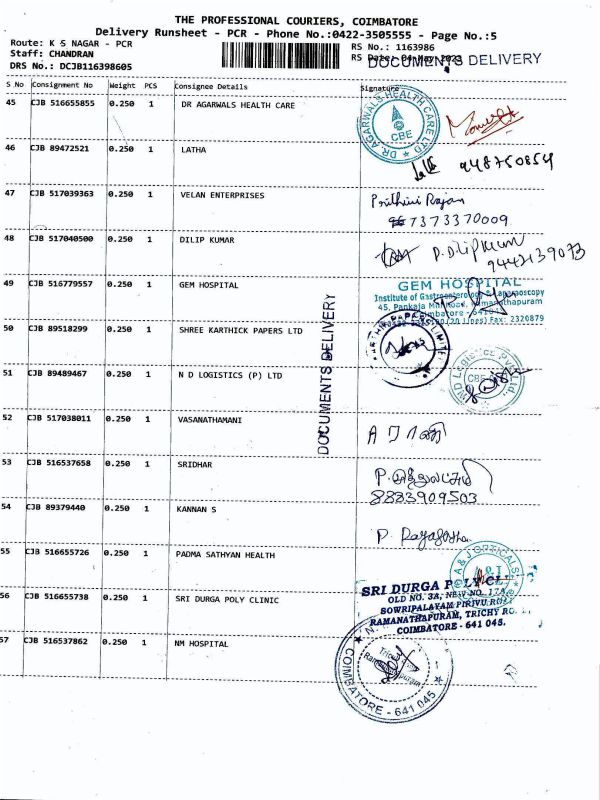 THE PROFESSIONAL COURIERS, COIMBATORE
Delivery Runsheet - PCR - Phone No.:0422-3505555 - Page No.:5
Route: K S NAGAR - PCR
RS No.: 1163986
Staff: CHANDRAN
RS Date: 04 May 2023
DOCUMENTS DELIVERY
DRS No.: DCJB116398605
S No Consignment No Weight PCS Consignee Details Signature
45 CJB 516655855 0.250 1 DR AGARWALS HEALTH CARE
DR AGARWALS HEALTH CARE LTD
CBE
46 CJB 89472521 0.250 1 LATHA
47 CJB 517039363 0.250 1 VELAN ENTERPRISES
Prithivi Rajan
7373370009
48 CJB 517040500 0.250 1 DILIP KUMAR
P. Dilipkumar
9442139073
49 CJB 516779557 0.250 1 GEM HOSPITAL
GEM HOSPITAL
Institute of Gastroenterology & Laparoscopy
45, Pankaja Mill Road, Ramanathapuram
Coimbatore - 641045
Fax: 2320879
50 CJB 89518299 0.250 1 SHREE KARTHICK PAPERS LTD
51 CJB 89489467 0.250 1 N D LOGISTICS (P) LTD
N D Logistics Pvt Ltd.
CBE
DOCUMENTS DELIVERY
52 CJB 517038011 0.250 1 VASANATHAMANI
53 CJB 516537658 0.250 1 SRIDHAR
8883909503
54 CJB 89379440 0.250 1 KANNAN S
55 CJB 516655726 0.250 1 PADMA SATHYAN HEALTH
A & J OPTICALS
56 CJB 516655738 0.250 1 SRI DURGA POLY CLINIC
SRI DURGA POLY CLI
OLD NO. 3A, NEW NO. 17A
BOWRIPALAYAM PIRIVU ROAD
RAMANATHAPURAM, TRICHY RO
COIMBATORE - 641 045.
57 CJB 516537862 0.250 1 NM HOSPITAL
COIMBATORE - 641 045